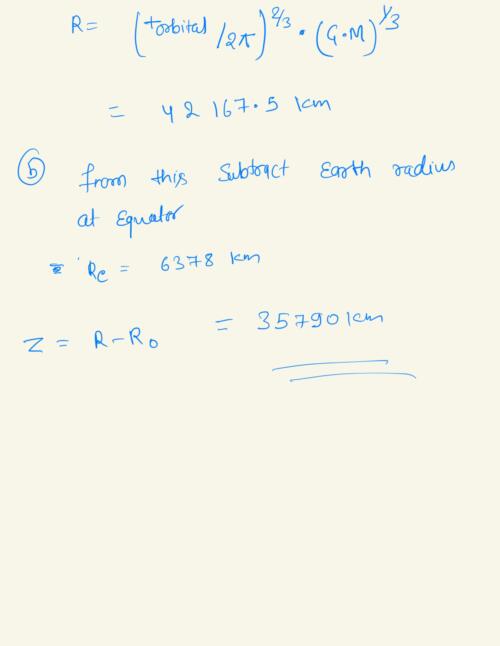 R = (torbital/2π)^2/3 · (G·M)^1/3
= 42167.5 km
(b) from this Subtract Earth radius
at Equator
Re = 6378 km
Z = R - R0 = 35790 km